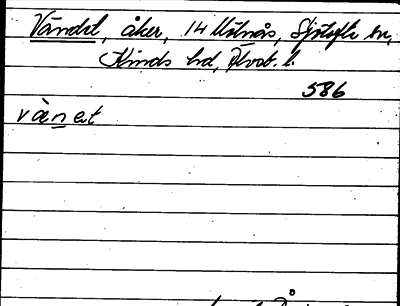 Vändet, åker, 14 Mölnås, Sjötofta sn,
Kinds hd, Älvsb. l.
586
vànet